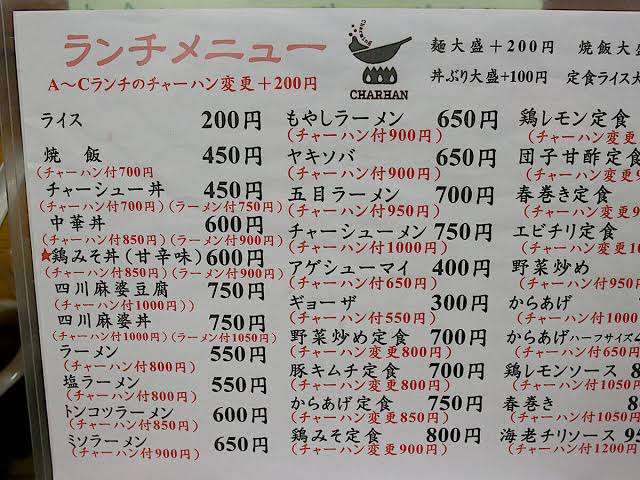 ランチメニュー
A〜Cランチのチャーハン変更+200円
CHARHAN
麺大盛+200円
焼飯大
丼ぶり大盛+100円
定食ライス
ライス 200円
焼飯 450円
(チャーハン付700円
チャーシュー丼 450円
(チャーハン付700円)(ラーメン付750円)
中華丼 600円
(チャーハン付850円)(ラーメン付900円)
★鶏みそ丼(甘辛味)600円
(チャーハン付850円)(ラーメン付900円)
四川麻婆豆腐 750円
(チャーハン付1000円))
四川麻婆丼 750円
(チャーハン付1000円)(ラーメン付1050円)
ラーメン 550円
(チャーハン付800円)
塩ラーメン 550円
(チャーハン付800円)
トンコツラーメン 600円
(チャーハン付850円)
ミソラーメン 650円
(チャーハン付900円)
もやしラーメン 650円
(チャーハン付900円)
ヤキソバ 650円
(チャーハン付900円)
五目ラーメン 700円
(チャーハン付950円)
チャーシューメン 750円
(チャーハン付1000円)
アゲシューマイ 400円
(チャーハン付650円)
ギョーザ 300円
(チャーハン付550円)
野菜炒め定食 700円
(チャーハン変更800円)
豚キムチ定食 700円
(チャーハン変更800円)
からあげ定食 750円
(チャーハン変更850円)
鶏みそ定食 800円
(チャーハン変更900円)
鶏レモン定食
(チャーハン変更
団子甘酢定食
(チャーハン変更9
春巻き定食
(チャーハン変更9
エビチリ定食
(チャーハン変更10
野菜炒め
(チャーハン付950円
からあげ
(チャーハン付1000
からあげハーフサイズ4
(チャーハン付650円
鶏レモンソース 8
(チャーハン付1050円
春巻き 8
(チャーハン付1050円
海老チリソース 95
(チャーハン付1200円)